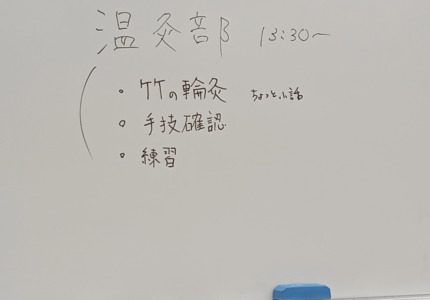 温灸部 13:30〜
・竹の輪灸 ちょっと小話
・手技確認
・練習